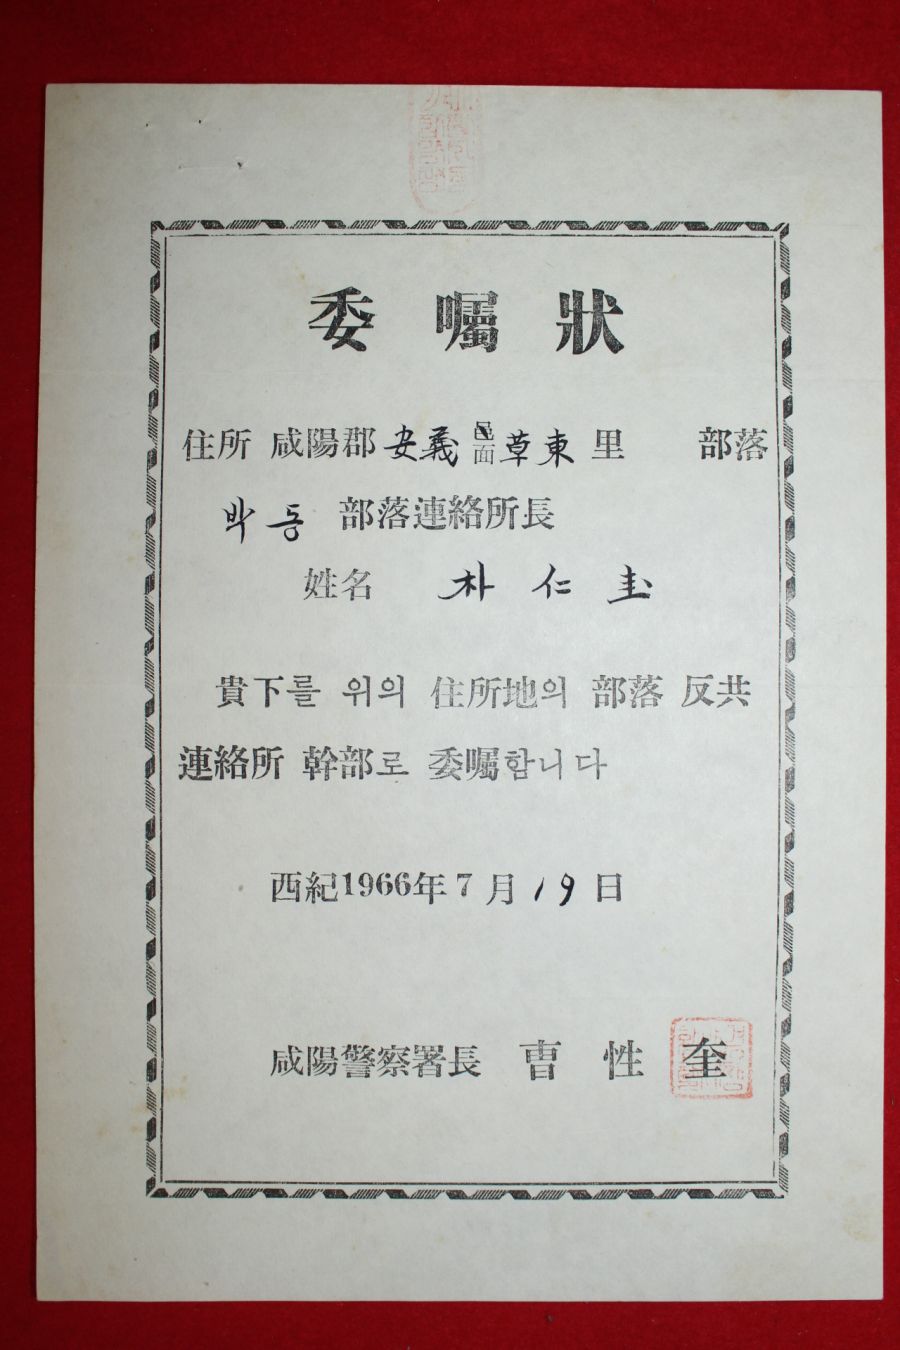 委囑狀
住所 咸陽郡 安義 邑面 草東 里 部落
박동 部落連絡所長
姓名 朴仁圭
貴下를 위의 住所地의 部落 反共
連絡所 幹部로 委囑합니다
西紀1966年 7月 19日
咸陽警察署長 曺性奎